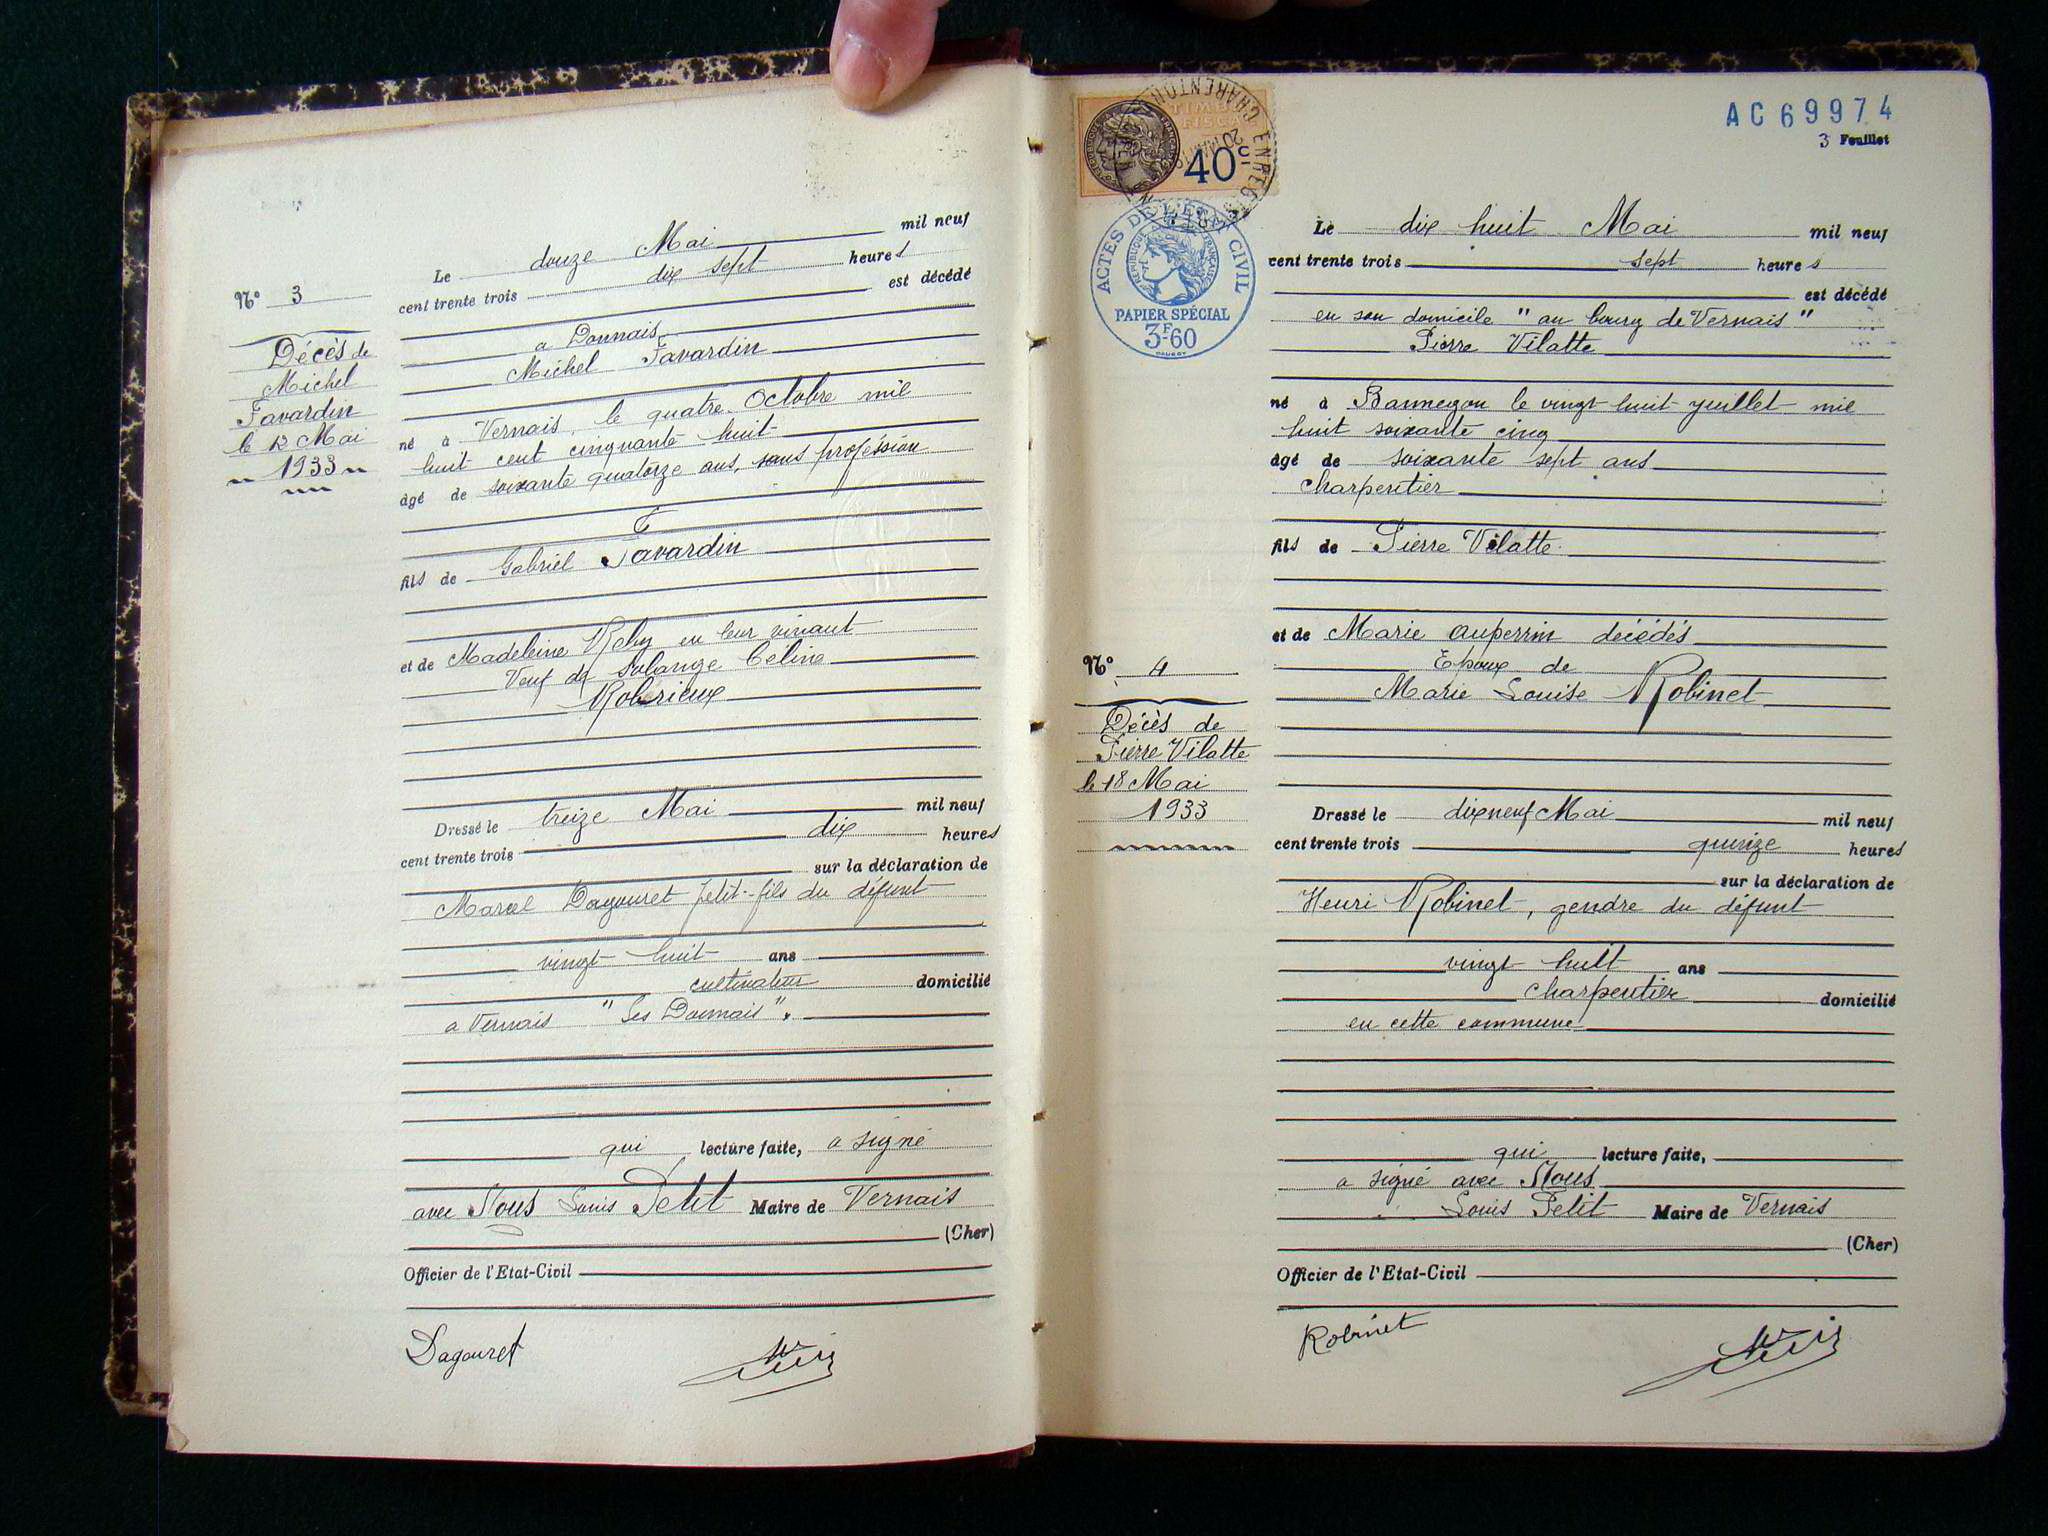 N° 3
Décès de
Michel
Favardin
le 12 Mai
1933
Le douze Mai mil neuf
cent trente trois dix sept heures
est décédé
a Donnais
Michel Favardin
né à Vernais, le quatre Octobre mil
huit cent cinquante huit
âgé de soixante quatorze ans, sans profession
F
fils de Gabriel Favardin
et de Madeleine en leur vivant
Veuf de Solange Céline
Robérieux
Dressé le treize Mai mil neuf
cent trente trois dix heures
sur la déclaration de
Marcel Dagouret petit-fils du défunt
vingt huit ans
cultivateur domicilié
a Vernais "Les Donnais".
qui lecture faite, a signé
avec Nous Louis Petit Maire de Vernais
(Cher)
Officier de l'Etat-Civil
Dagouret
TIMBRE
FISCAL
40c
CHARENTON
ENREG
ACTES DE L'ETAT CIVIL
REPUBLIQUE FRANÇAISE
PAPIER SPÉCIAL
3F60
AC 69974
3 Feuillet
N° 4
Décès de
Pierre Vilatte
le 18 Mai
1933
Le dix huit Mai mil neuf
cent trente trois sept heures
est décédé
en son domicile "au bourg de Vernais"
Pierre Vilatte
né à Bannegon le vingt huit juillet mil
huit soixante cinq
âgé de soixante sept ans
charpentier
fils de Pierre Vilatte
et de Marie Auperrin décédés
Epoux de
Marie Louise Robinet
Dressé le dix neuf Mai mil neuf
cent trente trois quinze heures
sur la déclaration de
Henri Robinet, gendre du défunt
vingt huit ans
charpentier domicilié
en cette commune
qui lecture faite,
a signé avec Nous
Louis Petit Maire de Vernais
(Cher)
Officier de l'Etat-Civil
Robinet